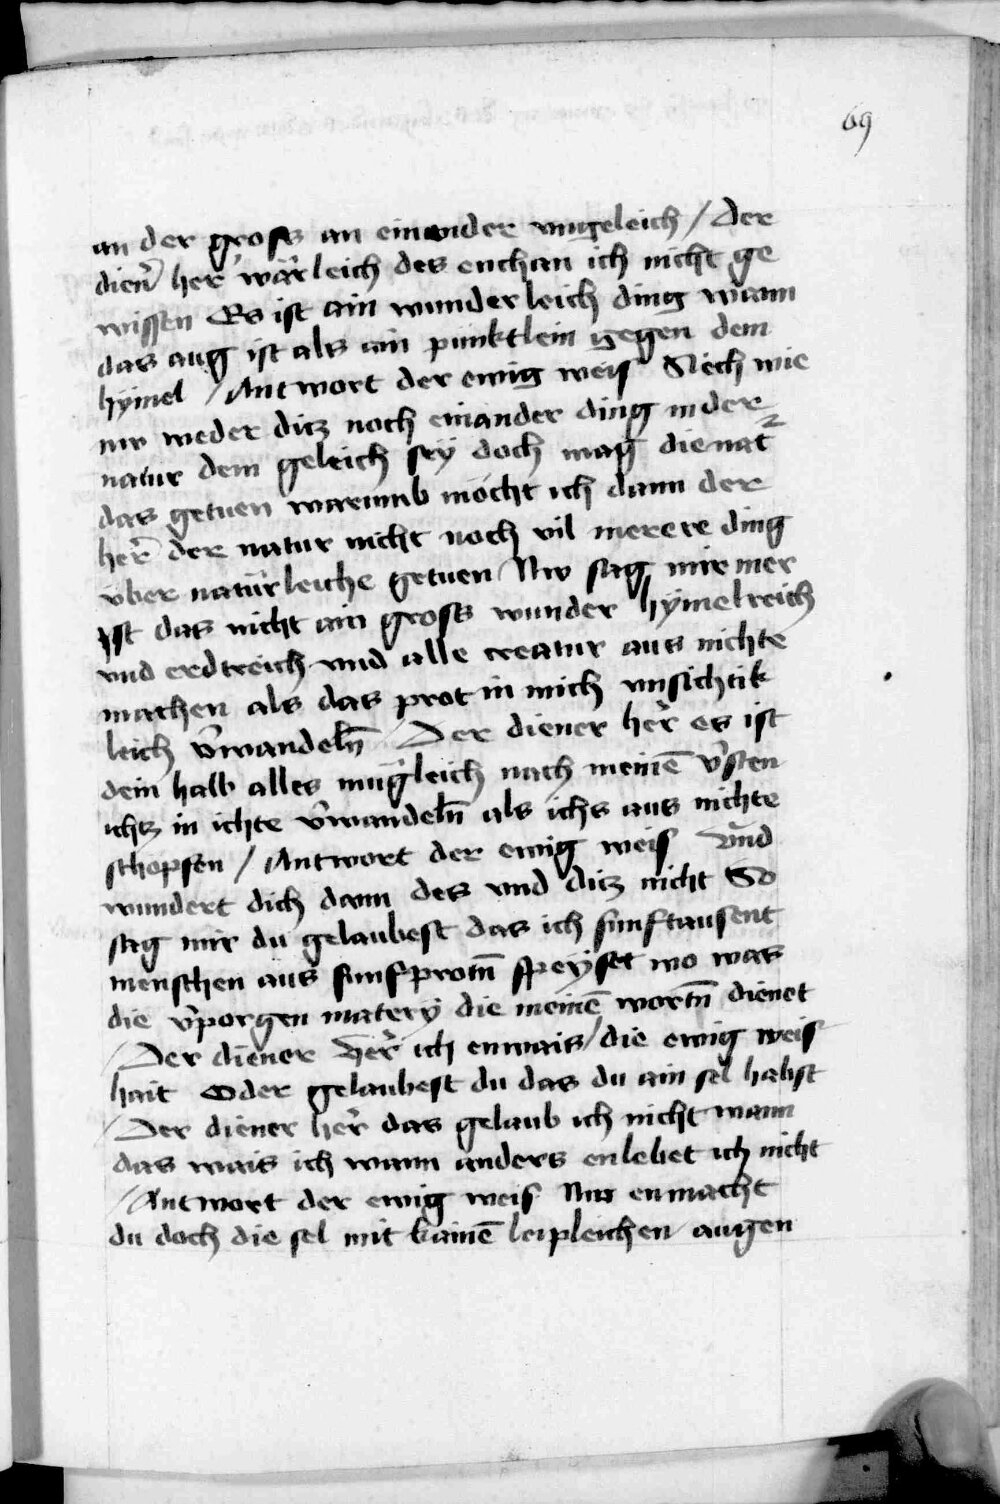 69
an der gross an einander vngeleich / Der
dien̄ her̄ wärleich des enchan ich nicht ge
wissen Es ist ain wunderleich ding wann
das aug ist als ain punktlein gegen dem
hÿmel / Antwort der ewig weis Siech wie
nw weder ditz noch einander ding in der
natur dem geleich sey doch mag die nat̄
das getuen warumb möcht ich dann der
her̄ der natur nicht noch vil merere ding
vber natürleiche getuen Nw sag mir mer
Ist das nicht ain gross wunder hÿmelreich
vnd erdtreich vnd alle creatur aus nichte
machen als das prot in mich vnsichtik
leich v̄wandeln̄ / Der diener her̄ es ist
dein halb alles mügleich nach meinē v̄sten
ichtz in ichte v̄wandeln̄ als ichs aus nichte
schopfen / Antwort der ewig weis vnd
wundert dich dann des vnd ditz nicht So
sag mir du gelaubest das ich finftausent
menschen aus finf protn̄ speyset wo was
die v̄porgen matery die meinē wortn̄ dienet
/ Der diener Her̄ ich enwais / die ewig weis
hait Oder gelaubest du das du ain sel habst
/ Der diener her̄ das gelaub ich nicht wann
das wais ich wann anders enlebet ich nicht
/ Antwort der ewig weis Nw enmacht
du doch die sel mit kainē leipleichen augen